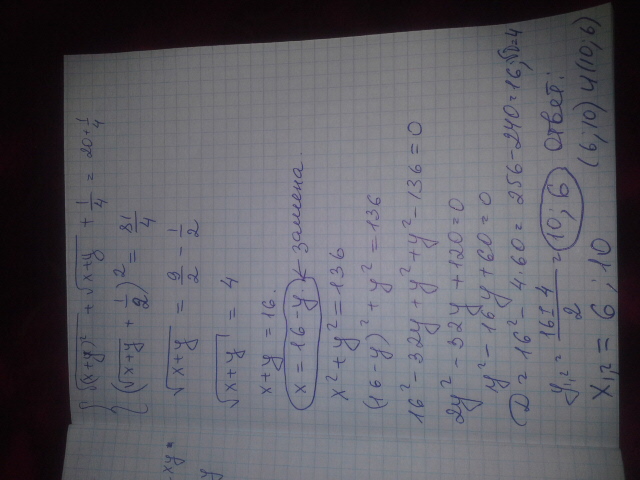 √(x+y)² + √x+y + 1/4 = 20+1/4
(√x+y + 1/2)² = 81/4
√x+y = 9/2 - 1/2
√x+y = 4
x+y = 16.
x = 16-y. ← замена.
x² + y² = 136
(16-y)² + y² = 136
16² - 32y + y² + y² - 136 = 0
2y² - 32y + 120 = 0
y² - 16y + 60 = 0
D = 16² - 4·60 = 256 - 240 = 16; √D = 4
y₁,₂ = 16±4/2 = 10; 6 Ответ:
x₁,₂ = 6; 10 (6; 10) и (10; 6)
-xy =
y